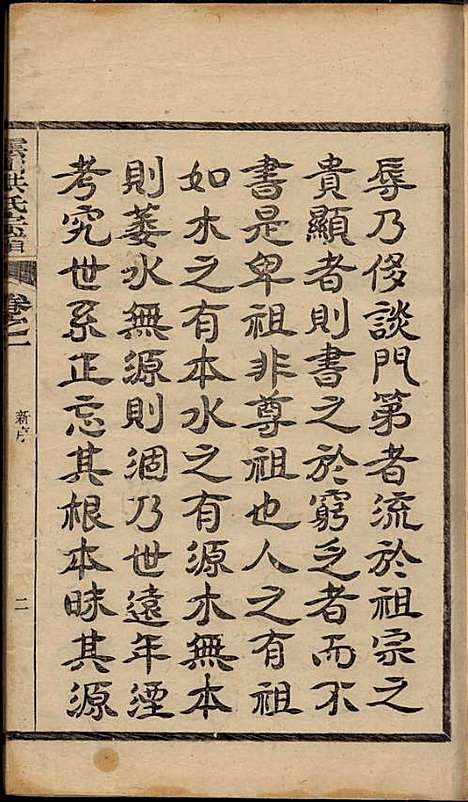 辱乃侈談門第者流於祖宗之
貴顯者則書之於窮乏者而不
書是卑祖非尊祖也人之有祖
如木之有本水之有源木無本
則萎水無源則涸乃世遠年湮
考究世系正忘其根本昧其源
洪氏宗譜
卷之一
新序
二